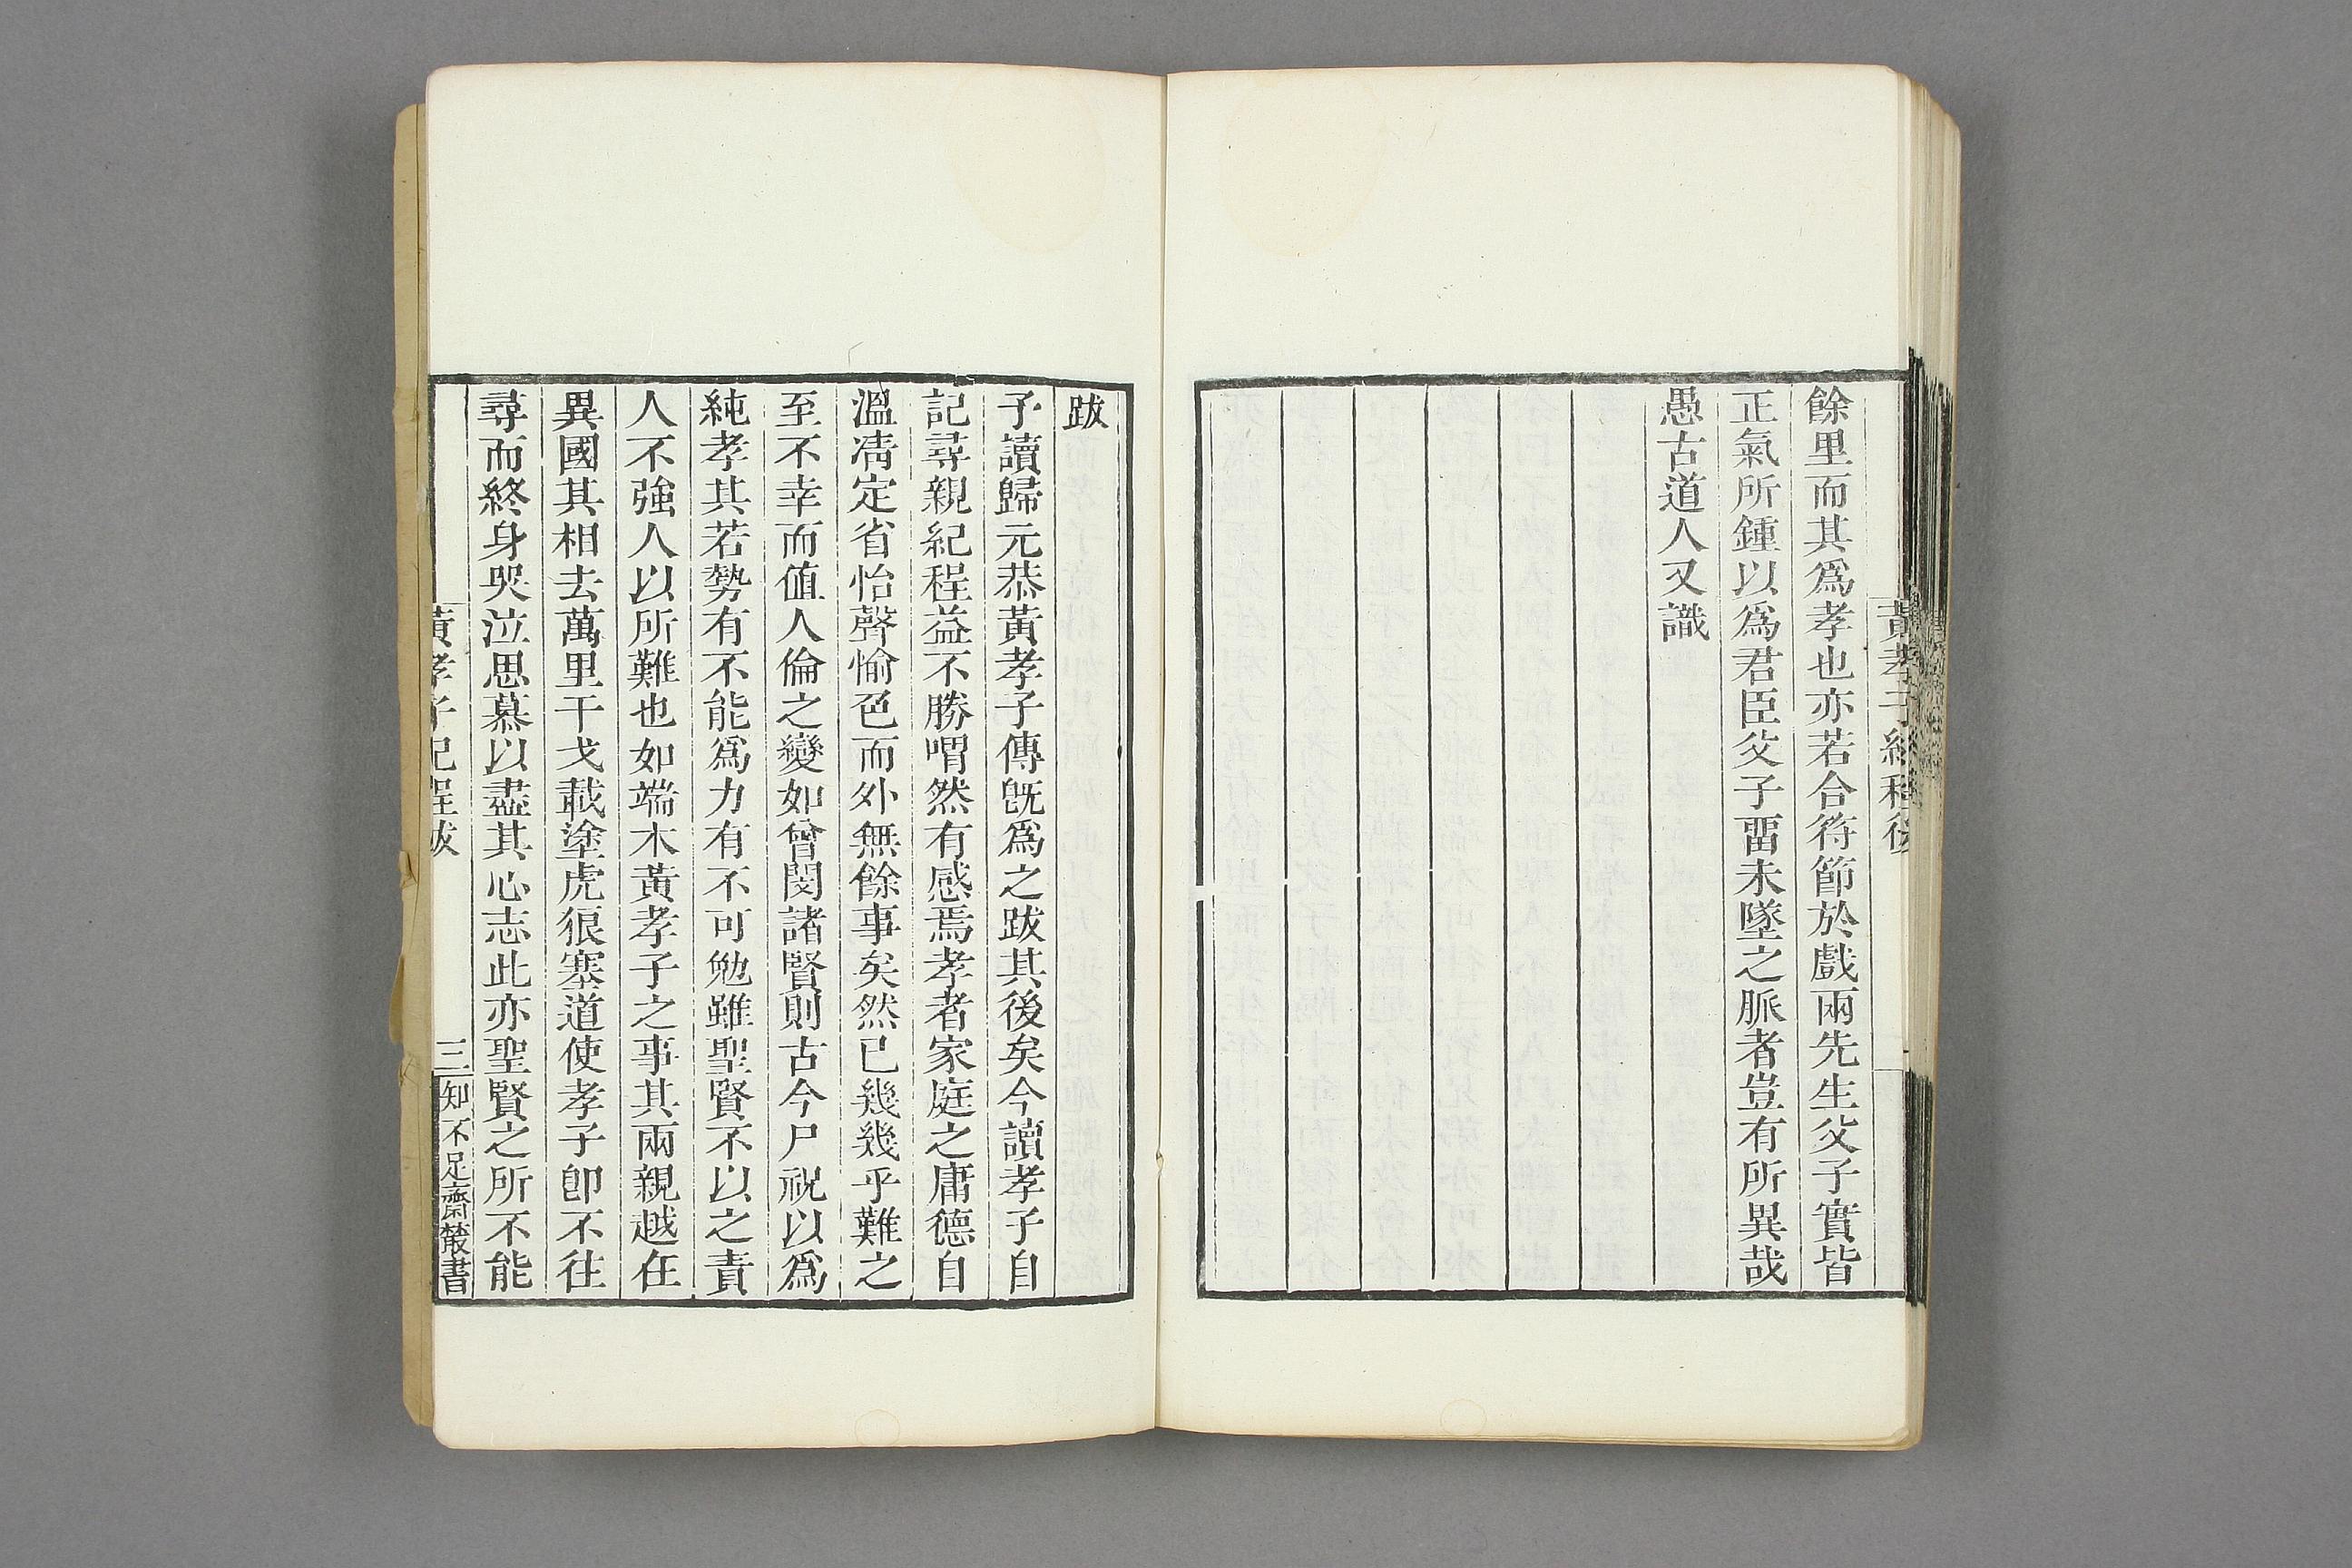 黃孝子紀程後
餘里而其爲孝也亦若合符節於戲兩先生父子實皆
正氣所鍾以爲君臣父子畱未墜之脈者豈有所異哉
愚古道人又識
跋
予讀歸元恭黃孝子傳旣爲之跋其後矣今讀孝子自
記尋親紀程益不勝喟然有感焉孝者家庭之庸德自
溫凊定省怡聲愉色而外無餘事矣然已幾幾乎難之
至不幸而値人倫之變如曾閔諸賢則古今尸祝以爲
純孝其若勢有不能爲力有不可勉雖聖賢不以之責
人不強人以所難也如端木黃孝子之事其兩親越在
異國其相去萬里干戈載塗虎狼塞道使孝子卽不往
尋而終身哭泣思慕以盡其心志此亦聖賢之所不能
黃孝子紀程跋 三 知不足齋叢書